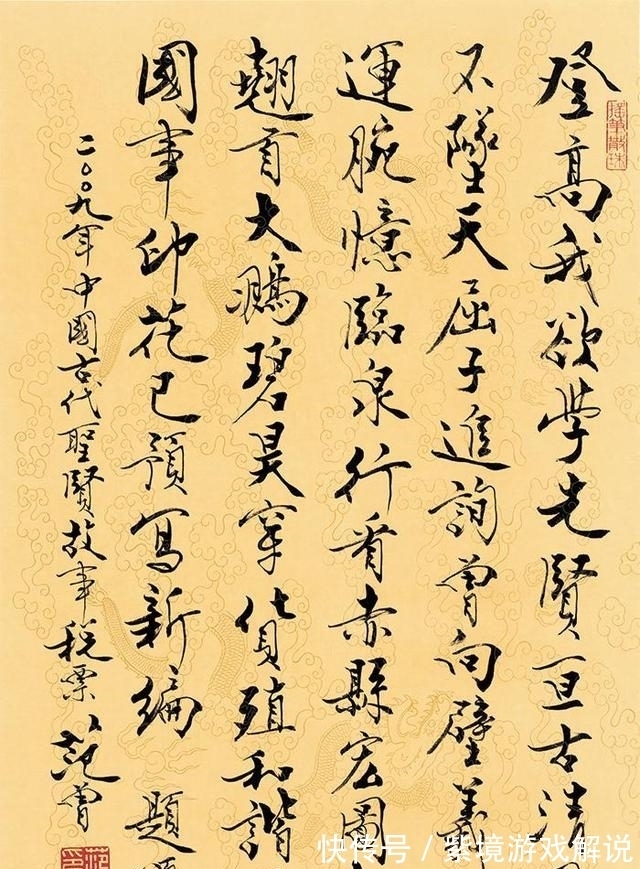 登高我欲學先賢亘古清
不墜天屈子進詢曾向壁羲
運腕憶臨泉行看赤縣宏圖
翹首大鵬碧昊穿貨殖和諧
國事印花已預寫新編 題
二〇〇九年中國古代聖賢故事税票 范曾
快传号 / 紫境游戏解说